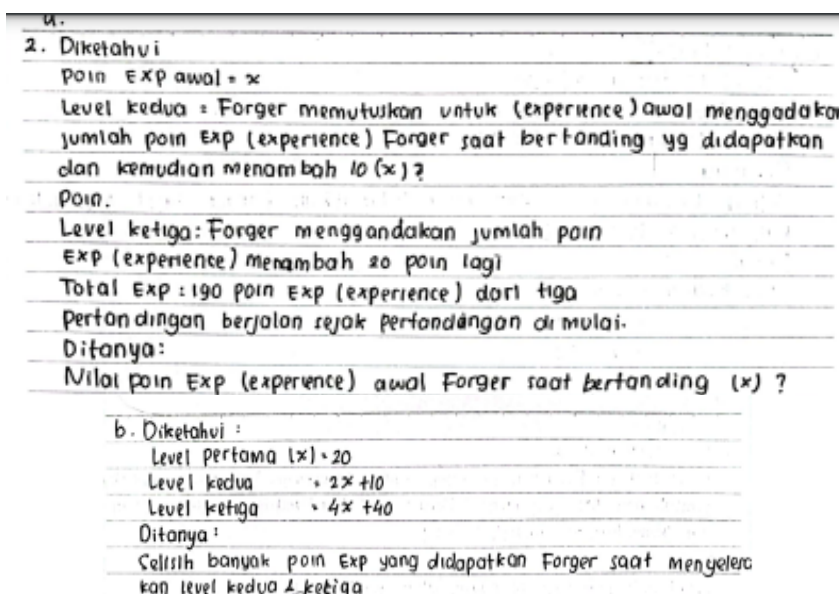 2. Diketahui
poin Exp awal = x
Level kedua = Forger memutuskan untuk (experience) awal menggadakan
jumlah poin Exp (experience) Forger saat bertanding yg didapatkan
dan kemudian menambah 10 (x)?
Poin.
Level ketiga: Forger menggandakan jumlah poin
Exp (experience) menambah 20 poin lagi
Total Exp : 190 poin Exp (experience) dari tiga
pertandingan berjalan sejak pertandingan di mulai.
Ditanya:
Nilai poin Exp (experience) awal Forger saat bertanding (x) ?
b. Diketahui :
Level pertama (x) = 20
Level kedua = 2x +10
Level ketiga = 4x +40
Ditanya :
Selisih banyak poin Exp yang didapatkan Forger saat menyelesa
kan level kedua & ketiga